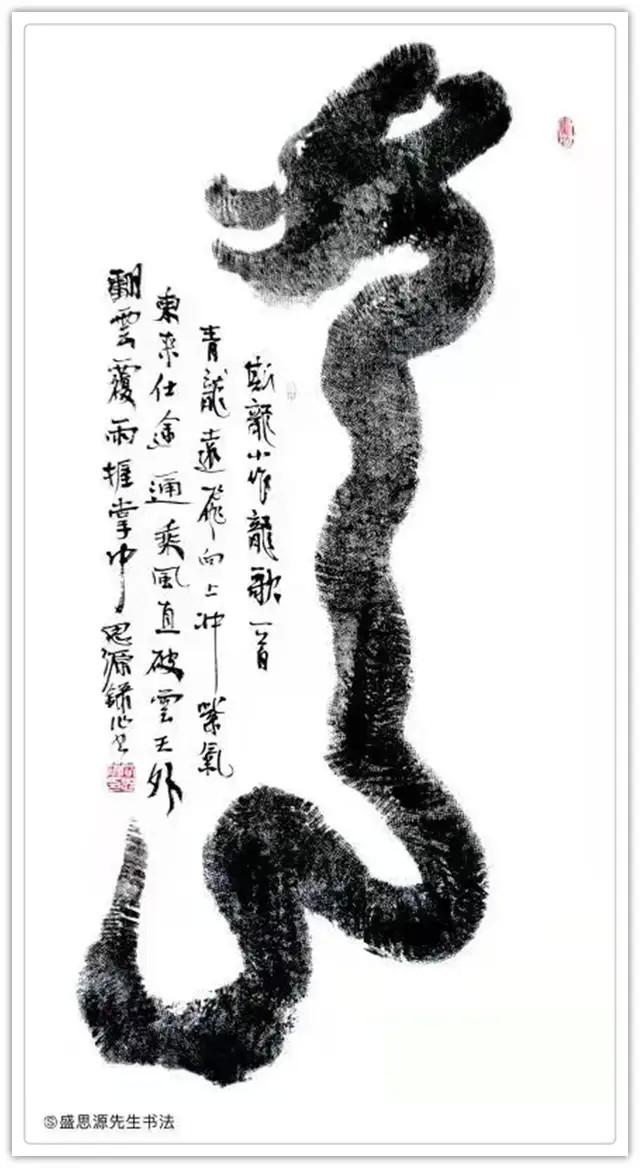 龍小作龍歌一首
青龍遠飛向上沖紫氣
東來仕途通乘風直破雲天外
翻雲覆雨握掌中思源錄
Ⓢ盛思源先生书法